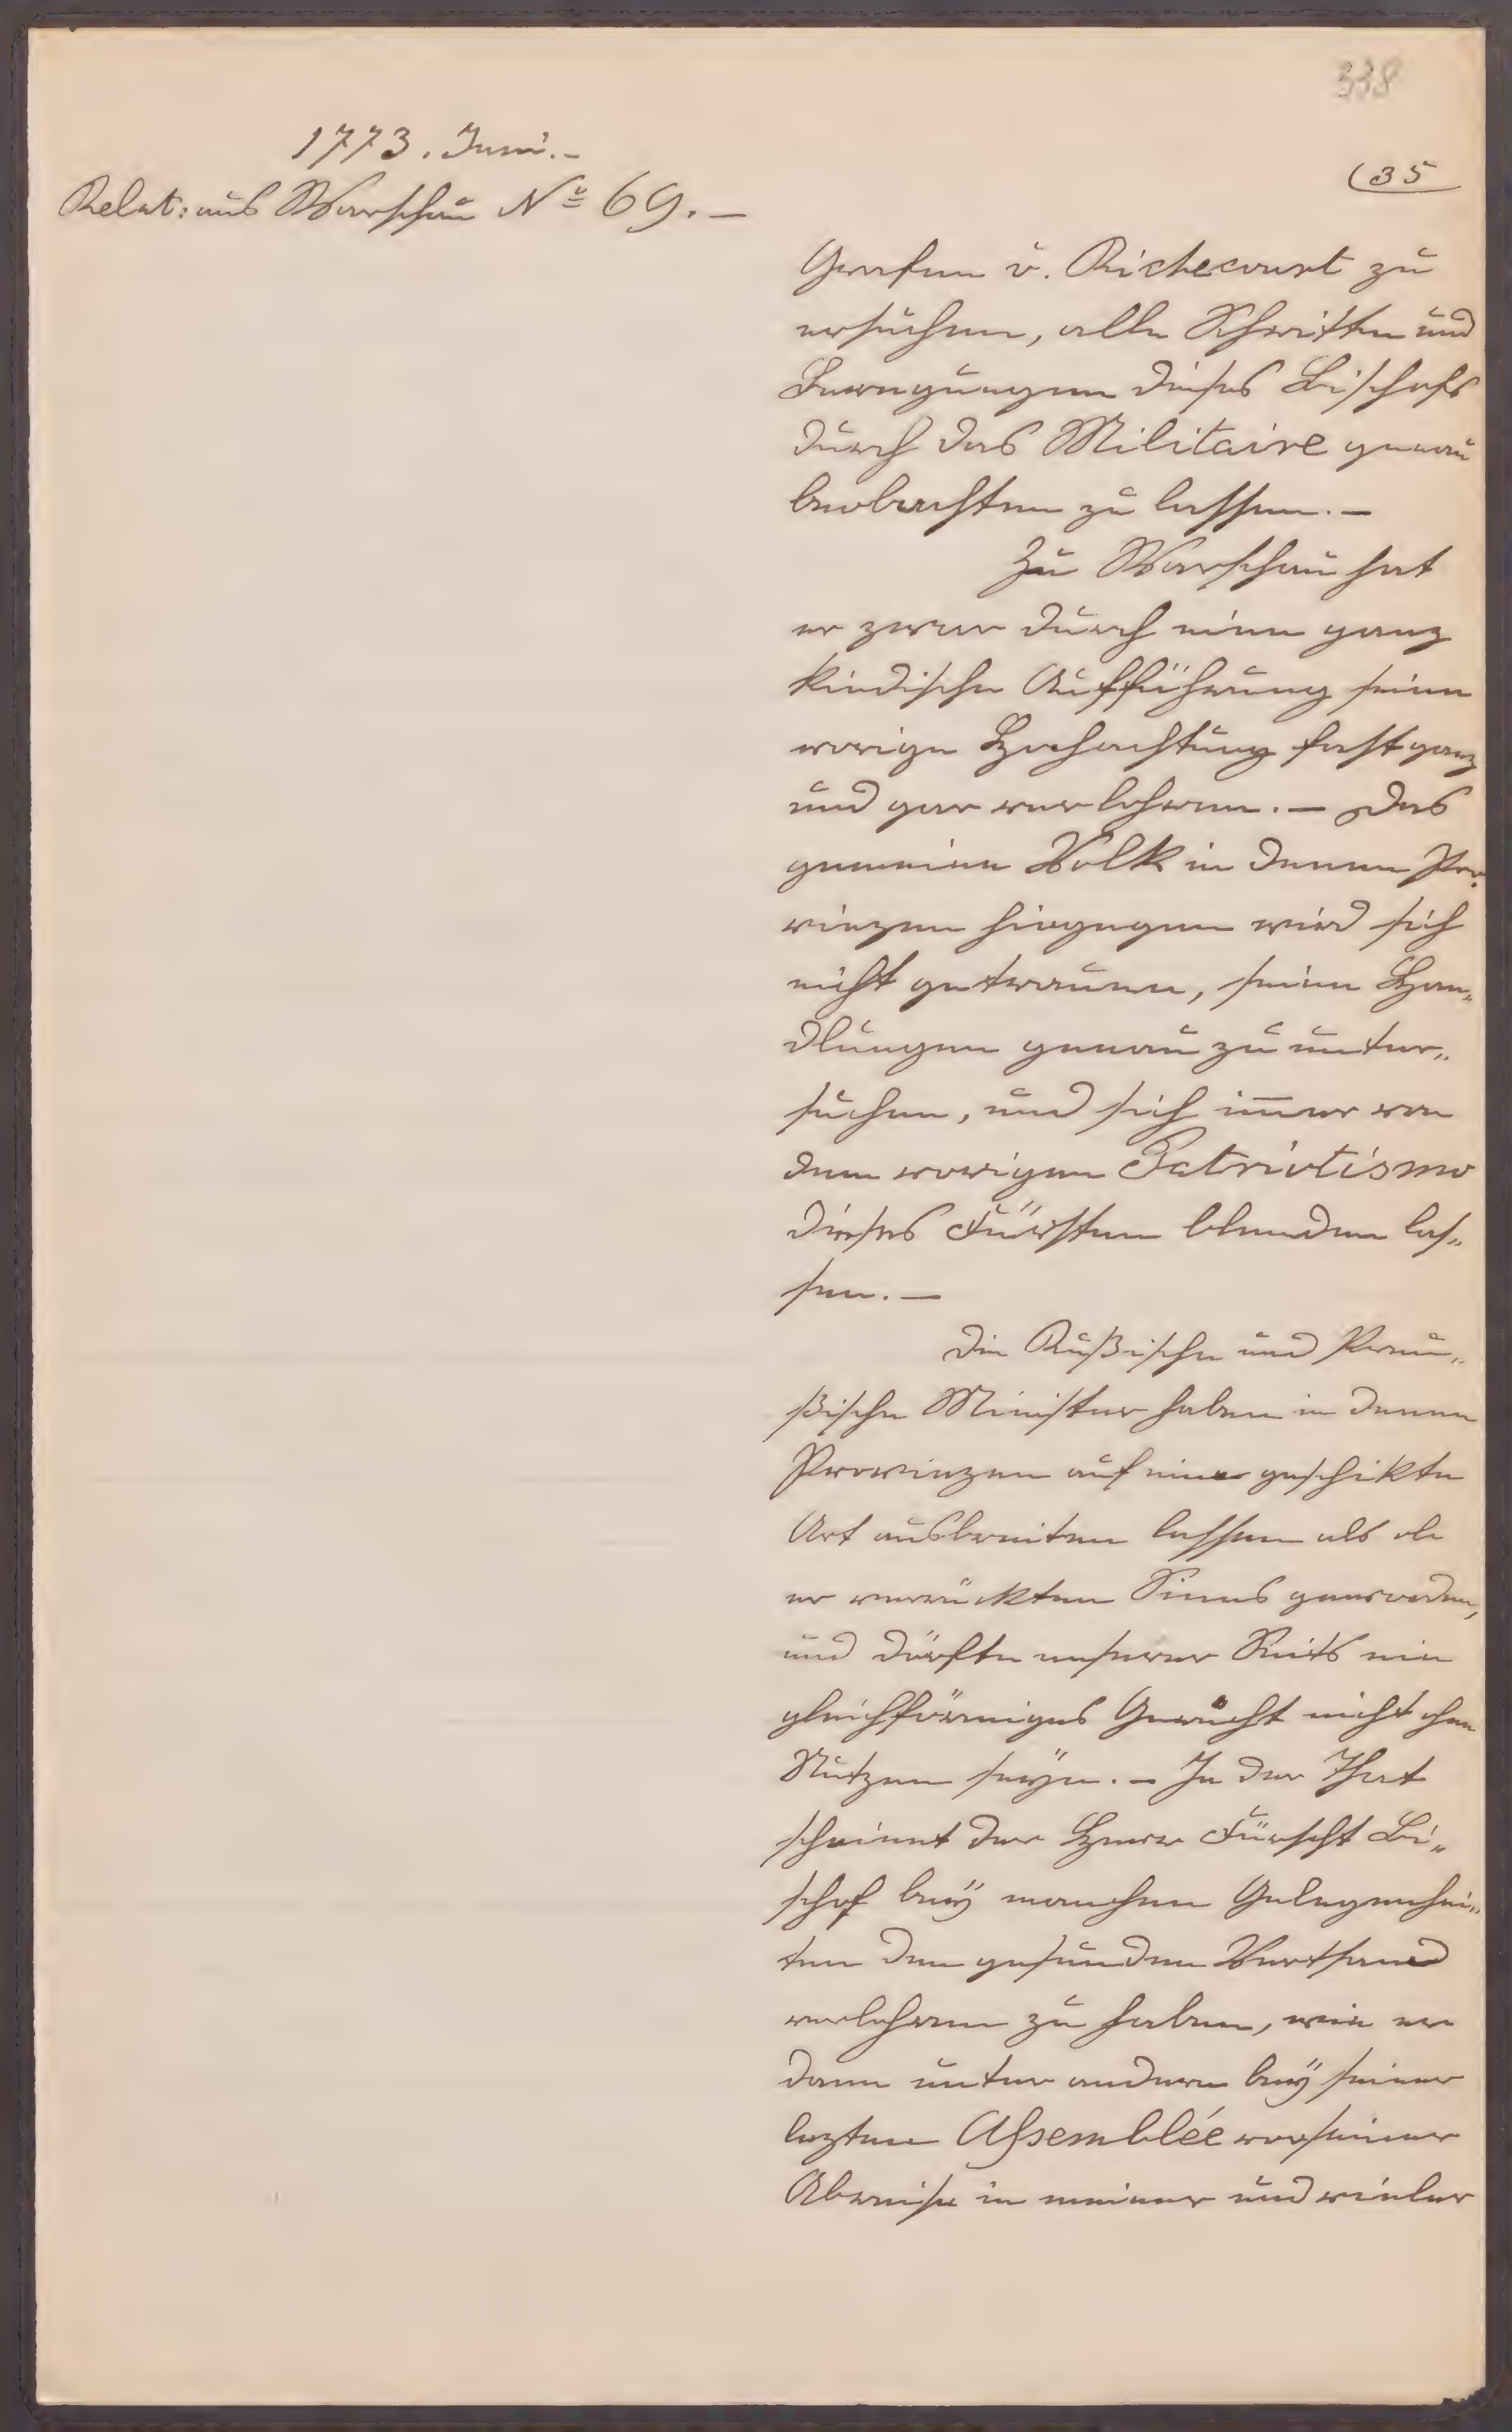 338
1773. Juni.-
(35
Relat: aus Warschau No 69.-
Grafen v. Richecourt zu
ersuchen, alle Schritten und
Bewegungen dieses Bischofs
durch das Militaire genau
beobachten zu lassen.-
Zu Warschau hat
er zwar durch eine ganz
kindische Aufführung seine
vorige Hochachtung fast ganz
und gar verlohren.- Das
gemeine Volk in denen Pro-
vinzen hingegen wird sich
nicht getrauen, seine Han„
dlungen genau zu unter„
suchen, und sich im̅er von
dem vorigen Patriotismo
dieses Fürsten blenden las„
sen.-
Die Rußische und Preu„
ßische Minister haben in denen
Provinzen auf eine geschikte
Art ausbreiten lassen als ob
er verrückten Sinns geworden,
und dürfte unserer Seits ein
gleichförmiges Gerücht nicht ohne
Nutzen seÿn.- In der That
scheinet der Herr Fürscht Bi„
schof beÿ manchen Gelegenhei„
ten den gesunden Vertsand
verlohren zu haben, wie er
dann unter andern beÿ seiner
lezten Assemblée vor seiner
Abreise in meiner und vieler